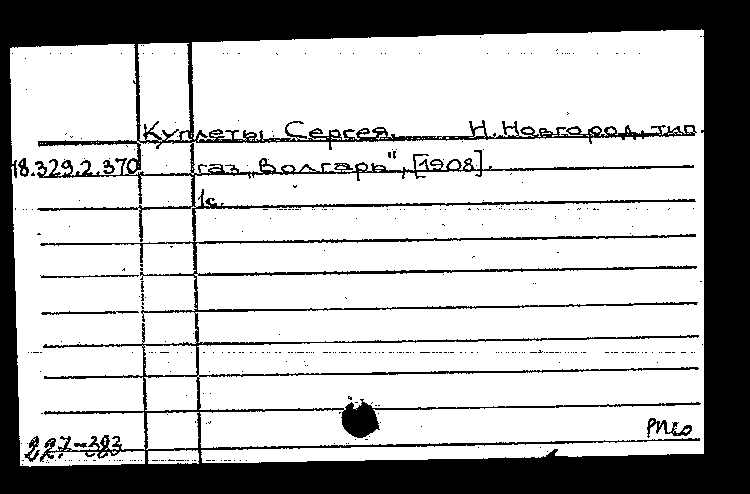 Куплеты Сергея. Н.Новгород, тип.
18.329.2.370 газ. „Волгарь", [1908].
1с.
227-383